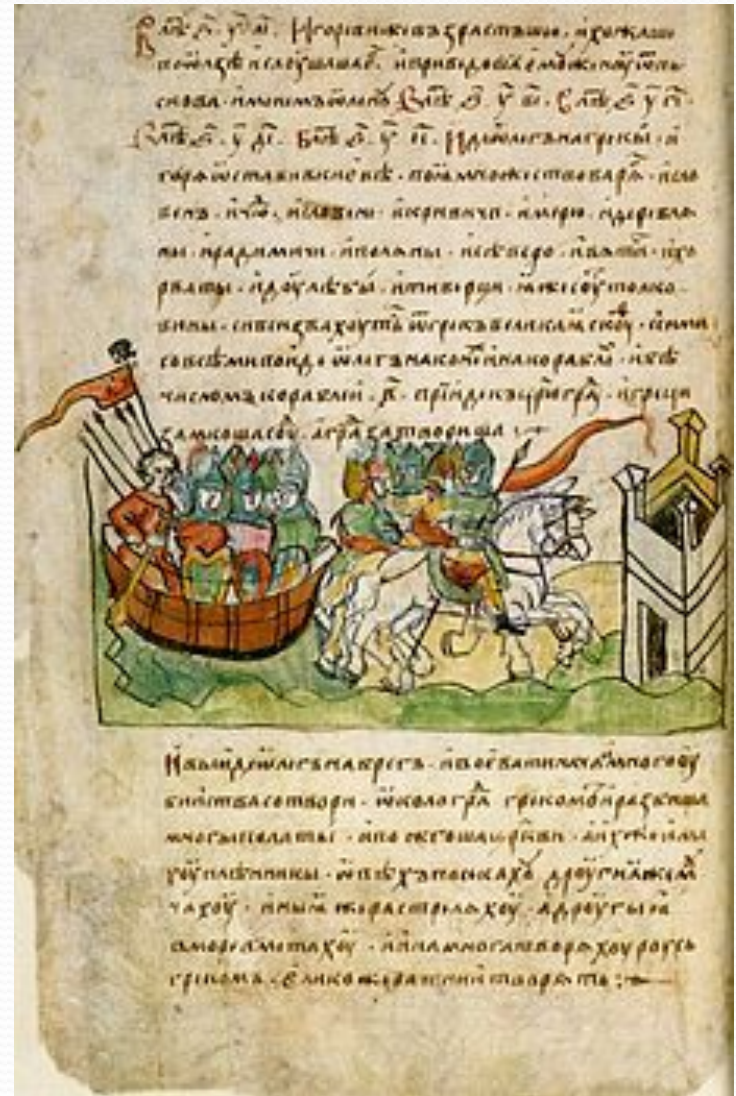 В лѣⷮ ҂ѕ҃ у҃ аі҃. Игореви же взрастъшю. и хожаше
по ѡлзѣ и слоушашаⷭ. и приведоша емоу женоу ѿ пь
скова. именемъ ѡленоу В лѣⷮ ҂ѕ҃ у҃ ві҃. В лѣⷮ ҂ѕ҃ у҃ гі҃.
В лѣⷮ ҂ѕ҃ у҃ ді҃. В лѣⷮ ҂ѕ҃ у҃ еі҃. Иде ѡлегъ на грекы. и
горѧ ѡстави в киевѣ. поѧ множество варѧⷢ. и сло
венъ. и чюⷣ. и словени. и кривичи. и мерю. и деревлѧ
ны. и радимичи. и полѧны. и сѣверо. и вѧтиⷱ. и хо
рваты. и доулѣбы. и тиверци. ꙗже соуⷮ толко
вины. си вси звахоутъ ѿ грекъ великаѧ скоуⷴ. с сими
со всѣми поиде ѡлегъ на конеⷯ и на кораблеⷯ. и бѣ
числомъ кораблеи. ҂в҃. прїиде къ цр҃югрⷣа. и греци
замкоша соуⷣ. а граⷣ затвориша
И выиде ѡлегъ на брегъ. и воевати нача. и много оу
бииства сотвори. ѡколо граⷣ грекомъ. и разбиша
многы полаты. и пожгоша цр҃кви. а иⷯ же имаⷯ
хоу плѣнникы. ѡвѣхъ посѣкахоу дроугиѧ же моу
чахоу. иныѧ же растрелѧхоу. а дроугыѧ
в море вметахоу. и ина многа творѧхоу роусь
грекомъ. елико же ратнии творѧть